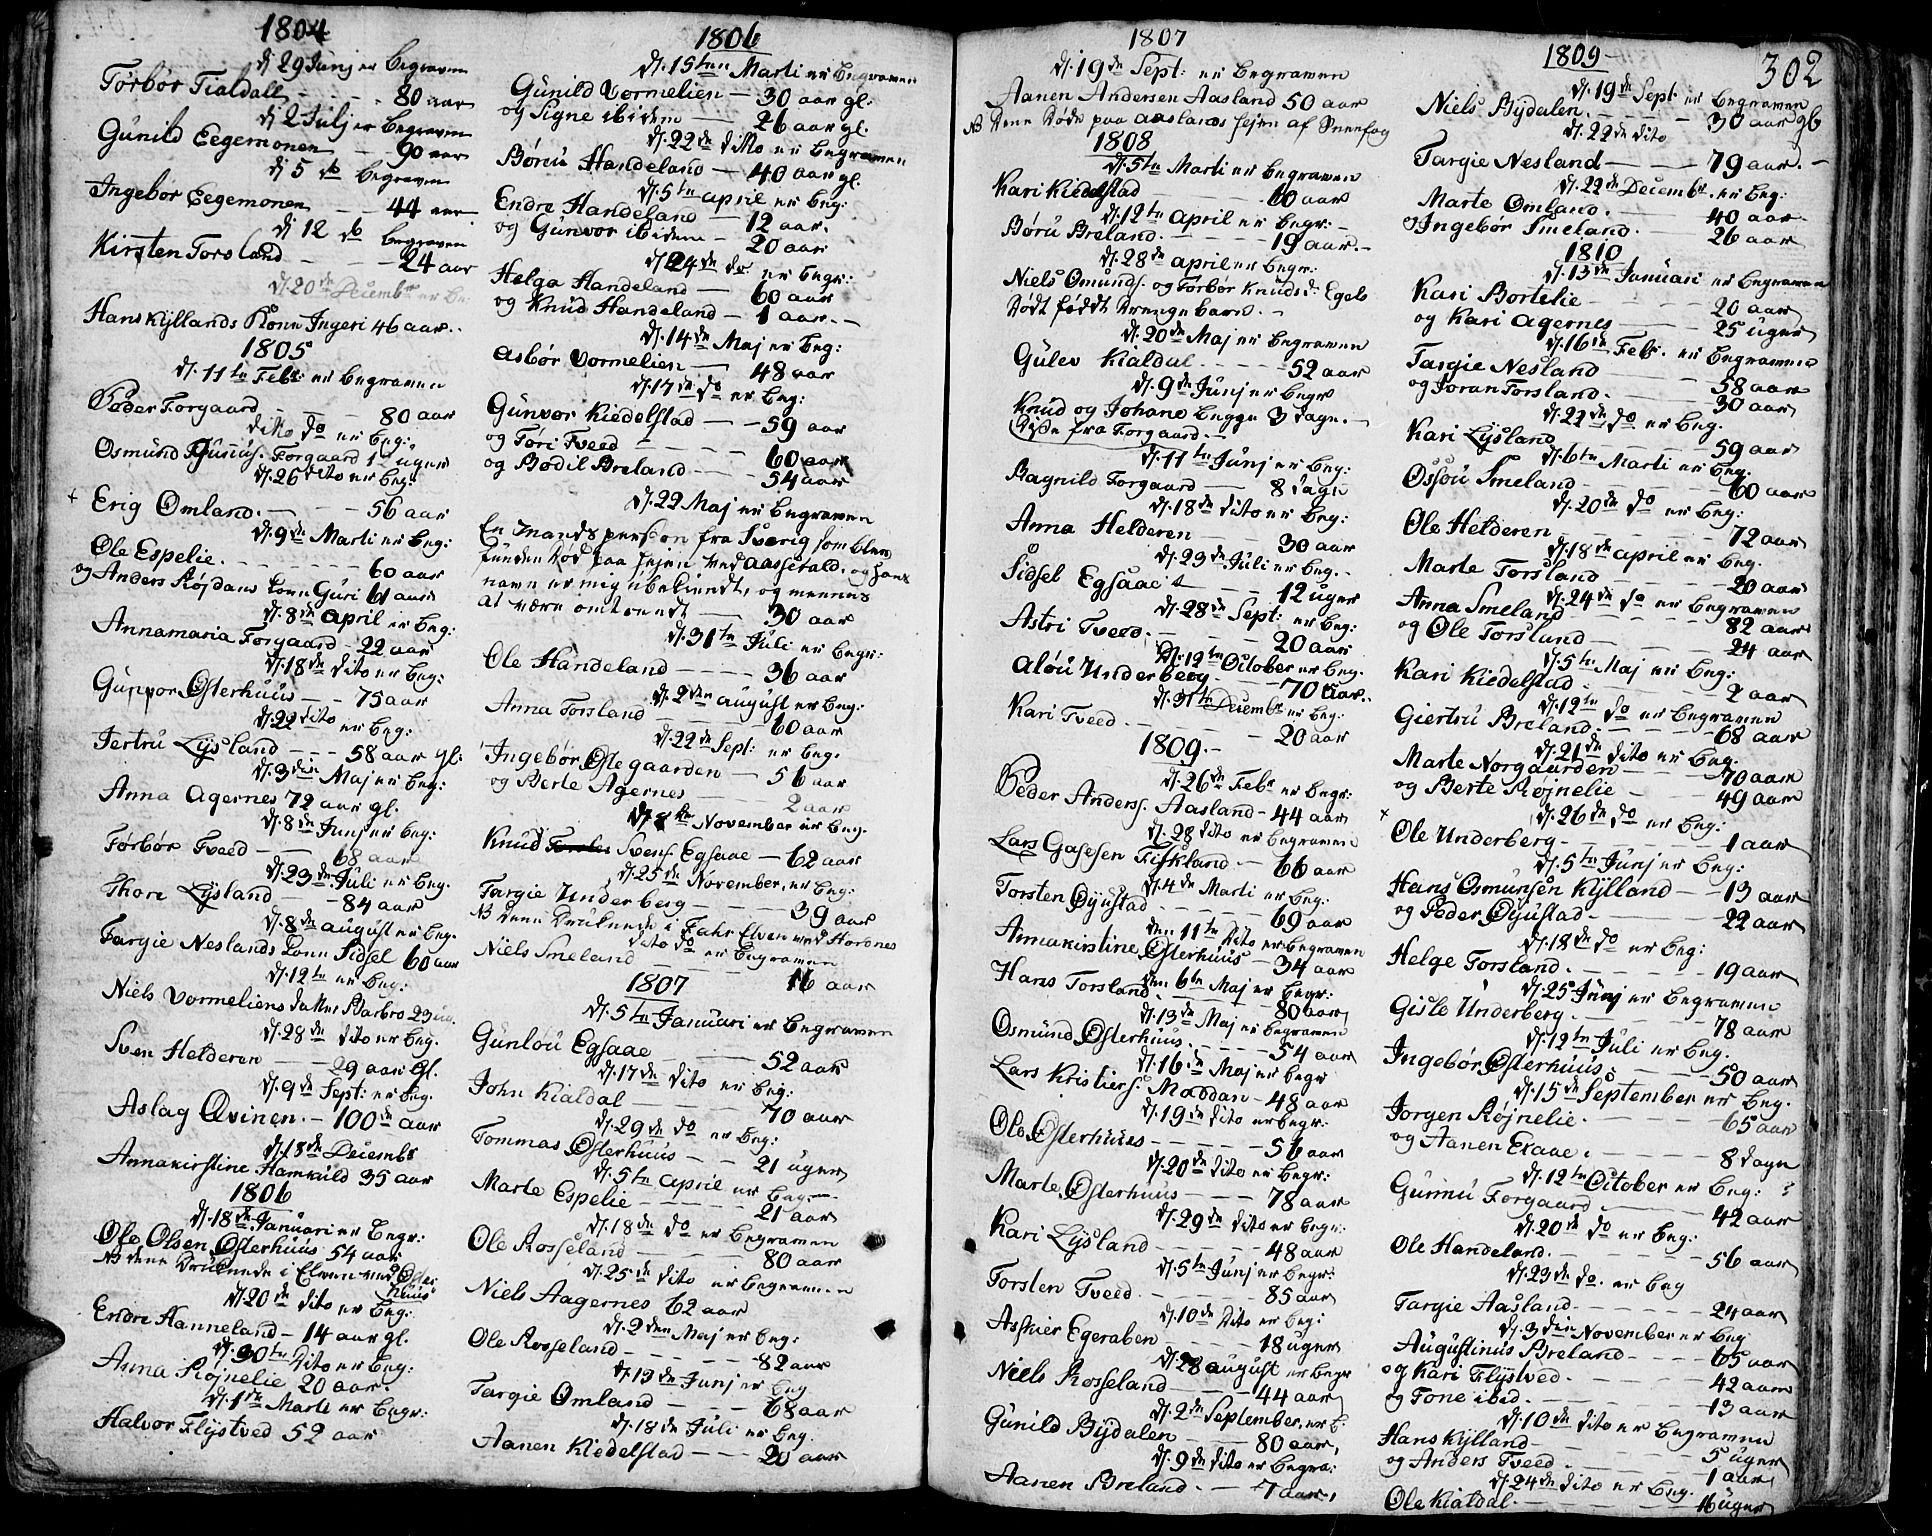 1804
dj 29 Junj er begraven
Torbor Tialdall - - - - 80 aar
dj 2 Julj er begraven
Gunild Eegemonen - - 90 aar
dj 5 do begraven
Ingebor Eegemonen - - 44 aar
dj 12 do begraven
Kirsten Torsland - - - 24 aar
dj. 20de Decembr er be:
Hans Kyllands Kone Ingeri 46 aar.
1805
dj. 11te Febr: er begraven
Peder Forgaard - - - 80 aar
dito do er beg:
Osmund Forgaard uger
dj. 26 dito er beg:
+ Erig Omland. - - - 56 aar
dj. 9de Marti er beg:
Ole Espelie. - - - - - 60 aar
og Anders Røjdans kone Guri 61 aar
dj. 8de april er beg:
Annamaria Forgaard - 22 aar
dj. 18de dito er beg:
Osterhuus - - 75 aar
dj. 22 dito er beg:
Jertru Lysland - - - 58 aar gl:
dj. 3die Maj er beg:
Anna Agernes 72 aar gl.
dj. 8de Junj er beg:
Torbor Tveed - - 68 aar
dj. 23de Juli er beg.
Thore Lysland - - - 84 aar
dj. 8de august er beg.
Targie Neslands kone Sidsel 60 aar
dj. 12te er beg:
Niels Vormeliens datter Barbro 23
dj. 28de dito er beg.
Sven Helderen - - 29 aar gl.
dj. 9de Sept: er beg.
Aslag Qvinen. - 100de aar
dj. 18de Decembr
Annakirstine Hamkild 35 aar
1806
dj. 18de Januari er begr:
Ole Olsen Osterhuus 54 aar
NB denne druknede i Elven ved Osterhuus
dj. 20de dito er beg:
Endre Hanneland - 14 aar gl.
dj. 30te dito er beg:
Anna Røjnelie 20 aar.
dj. 1te Marti er begr:
Halvor Flystved 52 aar
1806
dj. 15ten Marti er begraven
Gunild Vormelien - 30 aar gl.
og Signe ibidem - 26 aar gl.
dj. 22de dito er begraven
Boru Handeland - 40 aar gl.
dj. 5te april er beg:
Endre Handeland - 12 aar.
og Gunvor ibidem - 20 aar
dj. 24de do er begr:
Helga Handeland - 60 aar
og Knud Handeland - 1 aar. -
dj. 14de Maj er beg:
Asbor Vormelien - 48 aar
dj. 17de do er beg:
Gunvor Kiedelstad - - 59 aar
og Tori Tveed - - - 60 aar
og Bodil Breland - - 54 aar
dj. 22 Maj er begraven
En Mands person fra Sverig som blev
funden død paa hejen ved Aassetald, og hans
navn er mig ubekiendt, og mennes
at være omtrendt - 30 aar
dj. 31te Juli er begr:
Ole Handeland - - - 36 aar
dj. 2den august er beg:
Anna Torsland - - - 60 aar
dj. 22de Sept: er beg.
Ingebor Ostegaarden - 56 aar
og Berte Agernes - - - 2 aar
dj. 8de November er beg.
Knud Svens. Egsaae - 62 aar
dj. 25de November, er beg:
Targie Underberg - - - 39 aar
NB denne druknede i Elven ved Hornes
dito do er begraven
Niels Smeland - - - 16 aar
1807
dj. 5te Januari er begraven
Gunlou Egsaae - - - 52 aar
dj. 17de dito er beg:
John Kialdal - - - 70 aar
dj. 29de do er beg:
Tommas Osterhuus - - 21 uger
dj. 5te april er beg:
Marte Espelie - - - - 21 aar
dj. 18de do er begraven
Ole Rosseland - - - 80 aar
dj. 25de dito er begraven
Niels Aagernes 62 aar
dj. 2den Maj er beg:
Ole Rosseland - - - - 82 aar
dj. 13de Junj er beg
Targie Omland - - - 68 aar
dj. 18de Juli er beg.
Aanen Kiedelstad - - 20 aar
1807
dj. 19de Sept: er begraven
Aanen Andersen Aasland 50 aar
NB denne døde paa Aaslands hejen af Snee fog
1808
dj. 5te Marti er begraven
Kari Kiedelstad - - - 60 aar
dj. 12te april er begr: -
Boru Breland. - - - 19 aar. -
dj. 28de april er begr:
Niels Osmunds. og Torbor Knudsd: Egels
dødt fødde drengebarn. -
dj. 20de Maj er begraven
Gulev Kialdal. - - - - 52 aar
dj. 9de Junj er begr
Knud og Johane begge 3 dage. -
fra Forgaard. -
dj. 11te Junj er beg:
Ragnild Forgaard - - 8 dage
dj. 18de dito er beg:
Anna Helderen - - - 30 aar
dj. 23de Juli er beg. -
Sidsel Egsaae - - - 12 uger
dj. 28de Sept: er beg:
Astri Tveed. - - - - 20 aar
dj. 12te October er beg.
Alou Underberg - - 70 aar.
dj. 31te Decembr er beg:
Kari Tveed. - - - - 20 aar
1809. -
dj. 26de Febr er begr:
Peder Anders. Aasland - 44 aar
dj. 28 dito er begraven
Lars Gasesen Fiskland - 66 aar
dj. 4de Marti er beg:
Torsten Oyustad - - - 69 aar
den 11te dito er begraven
Annakirstine Osterhuus - 34 aar
den 6te Maj er begr:
Hans Torsland. - - - 80 aar
dj. 13de Maj er begraven
Osmund Osterhuus. - - - 54 aar
dj. 16de Maj er begr
Lars Kristiers. Maddan - 48 aar
dj. 19de dito er begr:
Ole Osterhuus - - - - 56 aar
dj. 20de dito er begr:
Marte Osterhuus - - - 78 aar
dj. 29de dito er begr:
Kari Lysland - - - - 48 aar
dj. 5te Junj er begr:
Torsten Tveed. - - - - 85 aar
dj. 10de dito er beg:
Askier Egeraben - - - 18 uger
dj. 28 august er begr
Niels Rosseland - - - 44 aar
dj. 2de September, er b:
Gunild Bydalen - - 80 aar,
dj. 9de dito er begra:
Aanen Breland. - - 7 aar,
302
1809
dj. 19de Sept er begraven
Niels Bydalen. - - - - 30 aar gl
dj. 22de dito
Targie Nesland - - - 79 aar. -
dj. 22de Decembr. er beg:
Marte Omland. - - - 40 aar
og Ingebor Smeland. - 26 aar
1810
dj. 13de Januari er begraven
Kari Bortelie - - - 20 aar
og Kari Agernes - - 25 uger
dj. 16de Febr. er begraven
Targie Nesland - - - 58 aar
og Joran Torsland. - - 30 aar
dj. 22de do er beg.
Kari Lysland - - - - 59 aar
dj. 6te Marti er beg.
Ossou Smeland - - - 60 aar
dj. 20de do er beg:
Ole Helderen - - - - 72 aar
dj. 18de april er beg.
Marte Torsland - - - 20 aar
dj. 24de do er begraven
Anna Smeland - - - - 82 aar
og Ole Torslund - - - 24 aar
dj. 5te Maj er beg:
Kari Kiedelstad. - - - 2 aar
dj. 12te do er begraven
Giertru Breland. - - - 68 aar
dj. 21de dito er beg.
Marte Norgaarden - - 70 aar
og Berte Røjnelie - - 49 aar
dj. 26de do er beg:
+ Ole Underberg - - - 1 aar
dj. 5te Junj er beg:
Hans Osmunsen Kylland - 13 aar
og Peder Oyustad. - - - 22 aar
dj. 18de do er beg:
Helge Torsland. - - - - 19 aar
dj. 25de Junj er begraven
Gisle Underberg. - - - 78 aar
dj. 12te Juli er beg.
Ingebor Osterhuus. - - - 50 aar
dj. 15de September er beg.
Jorgen Røjnelie. - - - 65 aar
og Aanen Exaae. - - - 8 dage
dj. 12te October er beg:
Gunnu Forgaard - - - 42 aar
dj. 20de do er beg:
Ole Handeland. - - - - 56 aar
dj. 23de do. er beg
Targie Aasland - - - 24 aar
dj. 3die November er beg
Augustinus Breland - - - 65 aar
og Kari Flystved. - - - 42 aar
og Tone ibid. - - - - 13 aar
dj. 10de dito er begraven
Hans Kylland - - - - 5 uger
og Anders Tveed. - - - 1 aar
dj. 24de dito er beg.
Ole Kialdal. - - - - 16 uger